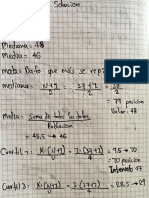 Solucion
Mediana = 48
Media = 46
moda = Dato que mas se repi
mediana = N+1/2 = 37+1/2 = 38/2
= 19 posicion
Valor: 48
Media = suma de todos los datos / Poblacion
= 45,5 → 46
Cuartil 1 = K·(N+1)/4 = 1·(37+1)/4 = 9,5 → 10
= 10 posicion
Cuartil 3 = K·(N+1)/4 = 3·(37+1)/4 = 28,5 → 29